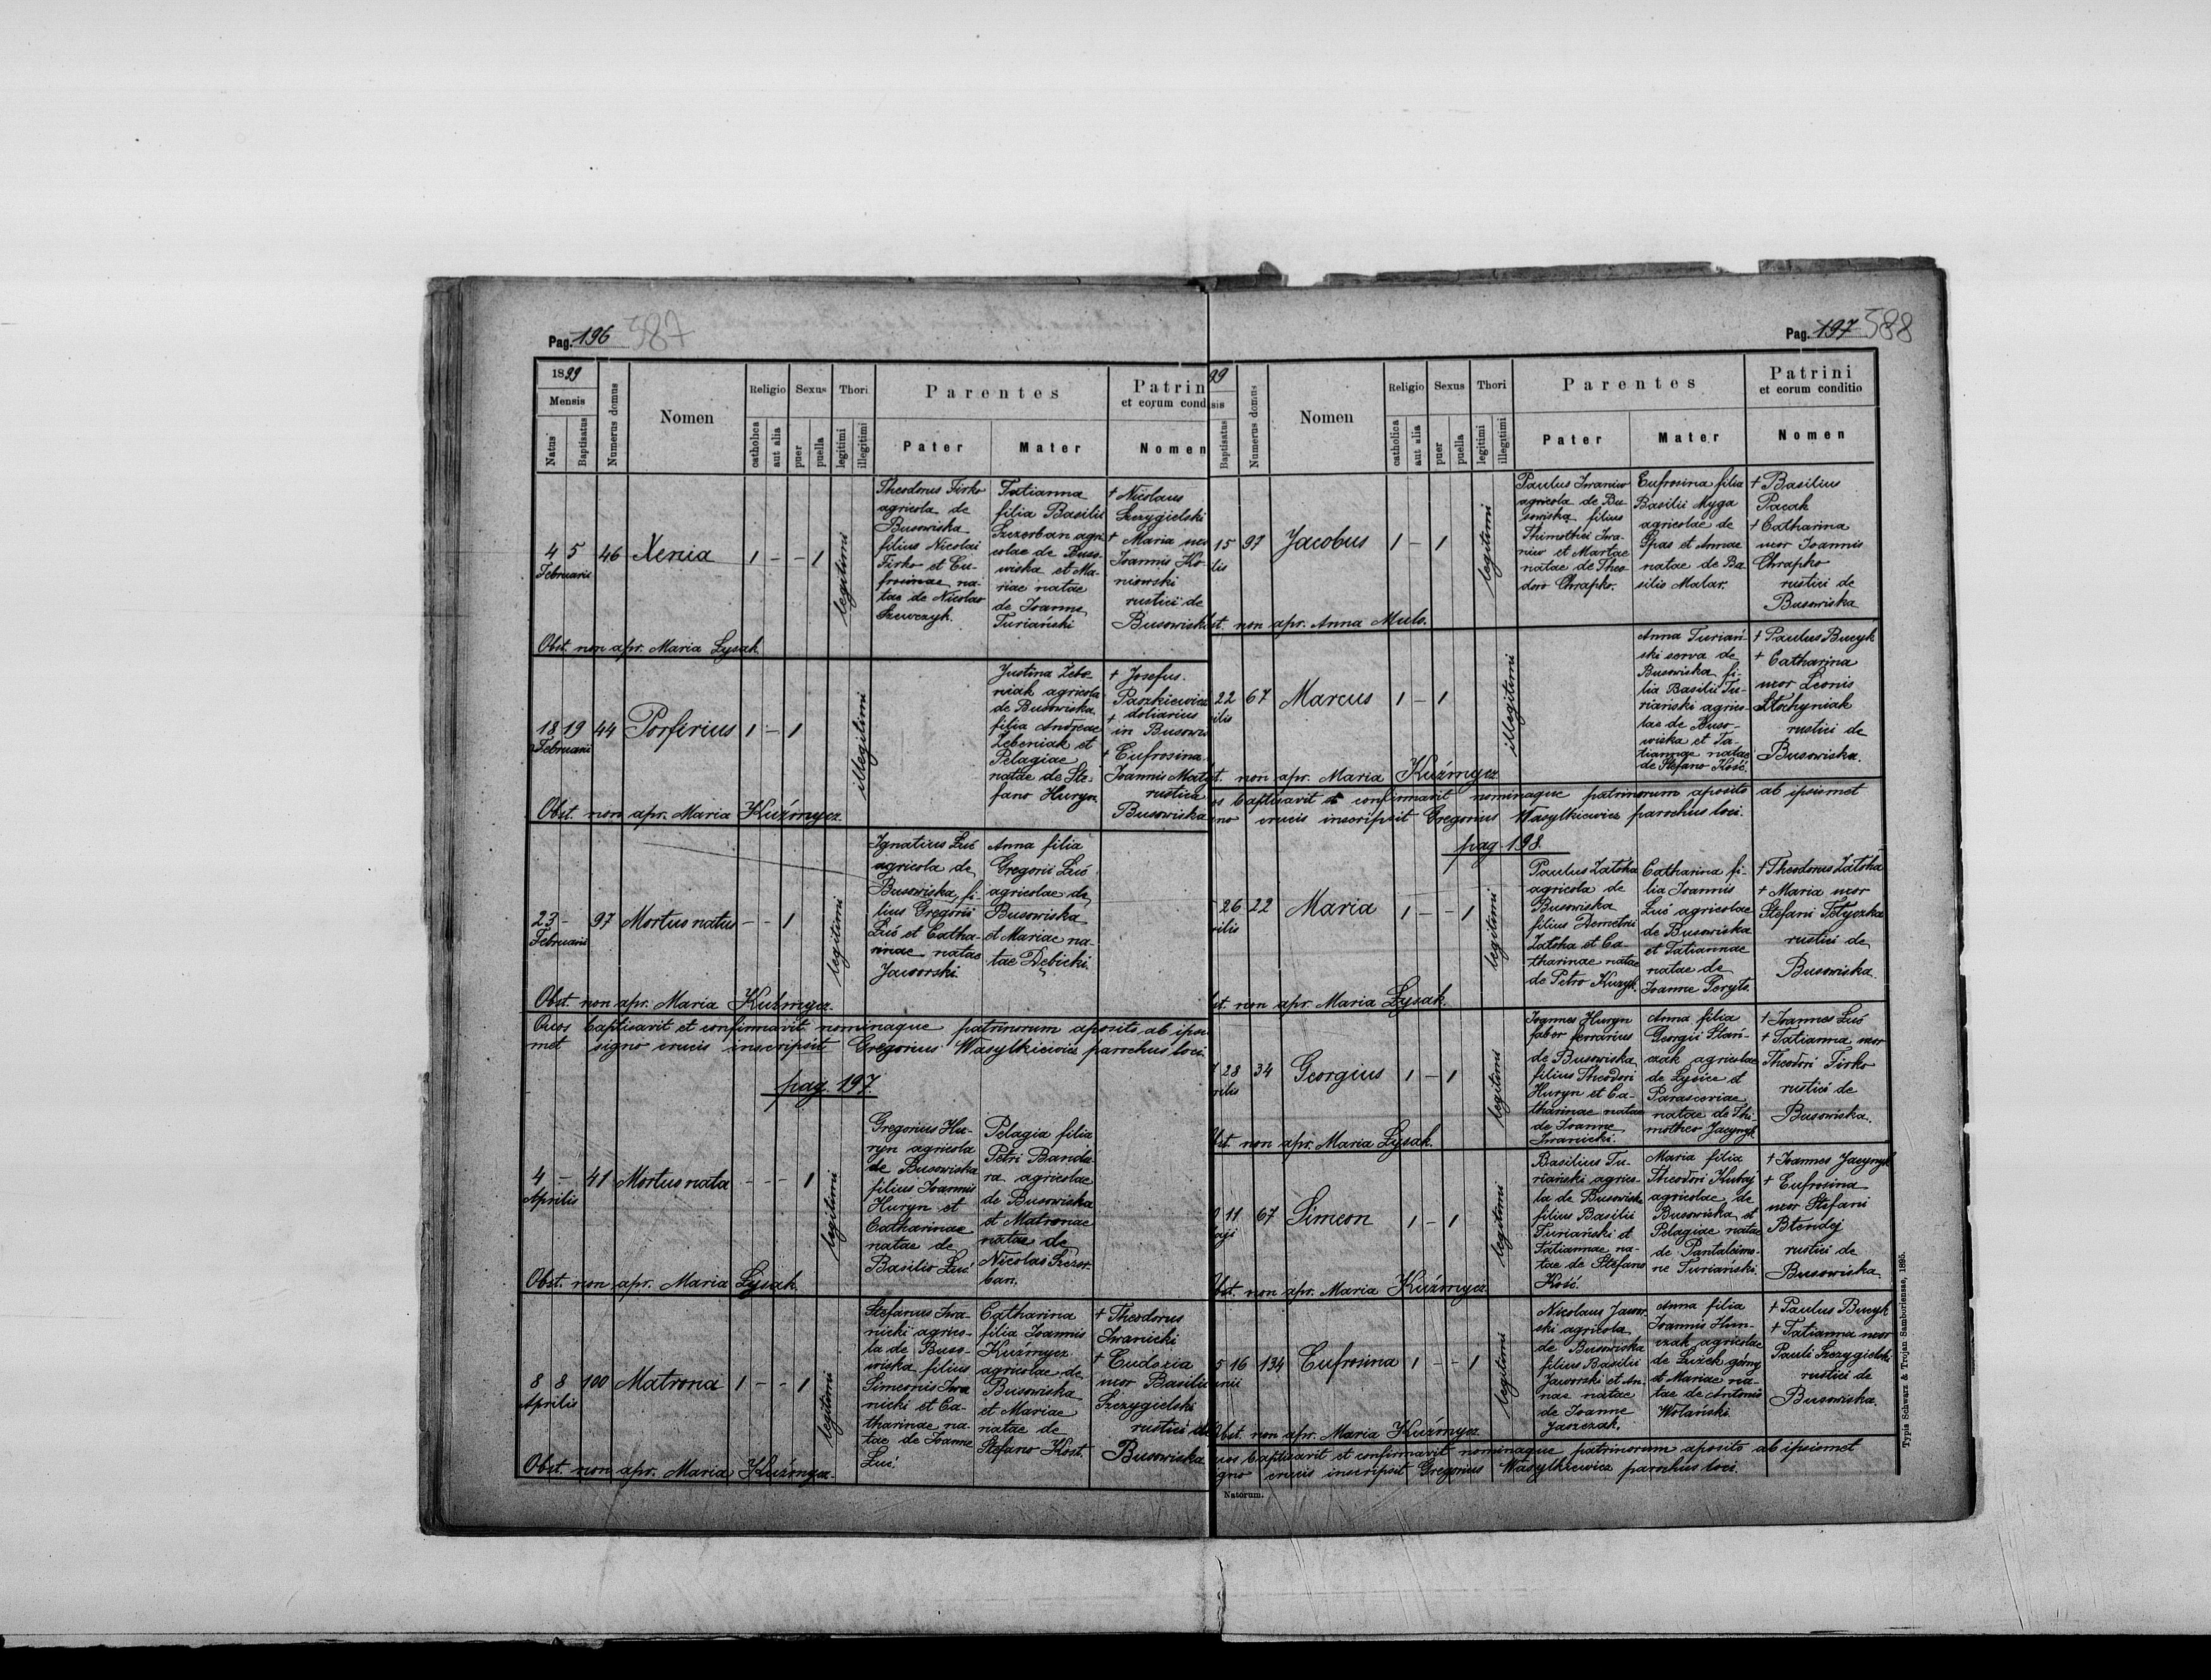 Pag. 196 387
1899
Mensis
Natus
Baptisatus
Numerus domus
Nomen
Religio
catholica
aut alia
Sexus
puer
puella
Thori
legitimi
illegitimi
Parentes
Pater
Mater
Patrin
et eorum cond
Nomen
4 5
Februarii
46
Xenia
1 - - 1
legitimi
Theodorus Firko
agricola de
Busowiska
filius Nicolai
Firko et Eu-
frosinae na-
tae de Nicolao
Szewczyk.
Tatianna
filia Basilii
Szczerban agri
colae de Buso-
wiska et Ma-
riae natae
de Joanne
Turiański
† Nicolaus
Szczygielski
† Maria uxo
Joannis Ko-
niowski
rustici de
Busowisk
Obst. non apr. Maria Łysak
18 19
Februarii
44
Porfirius
1 - 1
illegitimi
Justina Zebe
niak agricola
de Busowiska
filia Andreae
Zebeniak et
Pelagiae
natae de Ste-
fano Huryn.
† Josefus
Paszkiewicz
doliarius
† in Busowis
† Eufrosina
Joannis Maty
rustica
Busowiska
Obst. non apr. Maria Kuźmycz
23 -
Februarii
97
Mortus natus
- - 1
legitimi
Ignatius Łuć
agricola de
Busowiska, fi-
lius Gregorii
Łuć et Catha-
rinae natae
Jaworski.
Anna filia
Gregorii Łuć
agricolae de
Busowiska
et Mariae na-
tae Dębicki.
Obst. non apr. Maria Kuźmycz.
Quos baptisavit et confirmavit nominaque patrinorum aposito ab ipso
met signo crucis inscripsit Gregorius Wasylkiewicz parochus loci.
pag. 197.
4 -
Aprilis
41
Mortus nata
- - - 1
legitimi
Gregorius Hu-
ryn agricola
de Busowiska
filius Joannis
Huryn et
Catharinae
natae de
Basilio Łuć
Pelagia filia
Petri Banda-
ra agricolae
de Busowiska
et Matronae
natae de
Nicolao Szczer-
ban.
Obst. non apr. Maria Łysak.
8 8
Aprilis
100
Matrona
1 - - 1
legitimi
Stefanus Iwa-
nicki agrico-
la de Buso-
wiska filius
Simeonis Iwa
nicki et Ca-
tharinae na-
tae de Joanne
Łuć.
Catharina
filia Joannis
Kuźmycz
agricolae de
Busowiska
et Mariae
natae de
Stefano Kost.
† Theodorus
Iwanicki
† Eudoxia
uxor Basilii
Szczygielski
rustici de
Busowiska
Obst. non apr. Maria Kuźmycz.
Pag. 197 388
99
sis
Baptisatus
Numerus domus
Nomen
Religio
catholica
aut alia
Sexus
puer
puella
Thori
legitimi
illegitimi
Parentes
Pater
Mater
Patrini
et eorum conditio
Nomen
15
lis
97
Jacobus
1 - 1
legitimi
Paulus Iwaniw
agricola de Bu-
sowiska filius
Thimothei Iwa-
niw et Martae
natae de Theo-
doro Chrapko.
Eufrosina filia
Basilii Myga
agricolae de
Spas et Annae
natae de Ba
silio Malar.
† Basilius
Pacak
† Catharina
uxor Joannis
Chrapko
rustici de
Busowiska
st. non apr. Anna Muls.
22
ilis
67
Marcus
1 - 1
illegitimi
Anna Turiań-
ski serva de
Busowiska fi-
lia Basilii Tu-
riański agrico-
lae de Buso-
wiska et Ta-
tiannae natae
de Stefano Kość.
† Paulus Bucyk
† Catharina
uxor Leonis
Stochyniak
rustici de
Busowiska.
t. non apr. Maria Kuźmycz
os baptisavit et confirmavit nominaque patrinorum aposito ab ipsismet
no crucis inscripsit Gregorius Wasylkiewicz parochus loci.
pag. 198.
26
rilis
22
Maria
1 - - 1
legitimi
Paulus Zatoka
agricola de
Busowiska
filius Demetrii
Zatoka et Ca-
tharinae natae
de Petro Kuzyk.
Catharina fi-
lia Joannis
Łuć agricolae
de Busowiska
et Tatiannae
natae de
Joanne Geryło.
† Theodorus Zatoka
† Maria uxor
Stefani Fetyczka
rustici de
Busowiska.
st. non apr. Maria Łysak.
28
rilis
34
Georgius
1 - 1
legitimi
Joannes Huryn
faber ferrarius
de Busowiska
filius Theodori
Huryn et Ca-
tharinae natae
de Joanne
Iwanicki.
Anna filia
Georgii Stań-
czak agricolae
de Łysice et
Parasceviae
natae de Thi-
motheo Jacynyk
† Joannes Łuć
† Tatianna uxor
Theodori Firko
rustici de
Busowiska.
bst. non apr. Maria Łysak.
0 11
aji
67
Simeon
1 - 1
legitimi
Basilius Tu-
riański agrico-
la de Busowiska
filius Basilii
Turiański et
Tatiannae na-
tae de Stefano
Kość.
Maria filia
Theodori Hubaj
agricolae de
Busowiska et
Pelagiae natae
de Pantaleimo-
ne Turiański.
† Joannes Jacynyk
† Eufrosina
uxor Stefani
Błendej
rustici de
Busowiska
bst. non apr. Maria Kuźmycz
5 16
unii
134
Eufrosina
1 - - 1
legitimi
Nicolaus Jawor
ski agricola
de Busowiska
filius Basilii
Jaworski et An-
nae natae
de Joanne
Jaszczak.
Anna filia
Joannis Hun-
czak agricolae
de Łużek górny
et Mariae na-
tae de Antonio
Wolański.
† Paulus Bucyk
† Tatianna uxor
Pauli Szczygielski
rustici de
Busowiska.
Obst. non apr. Maria Kuźmycz
uos baptisavit et confirmavit nominaque patrinorum aposito ab ipsismet
igno crucis inscripsit Gregorius Wasylkiewicz parochus loci.
Natorum.
Typis Schwarz & Trojan Samboriensae, 1895.